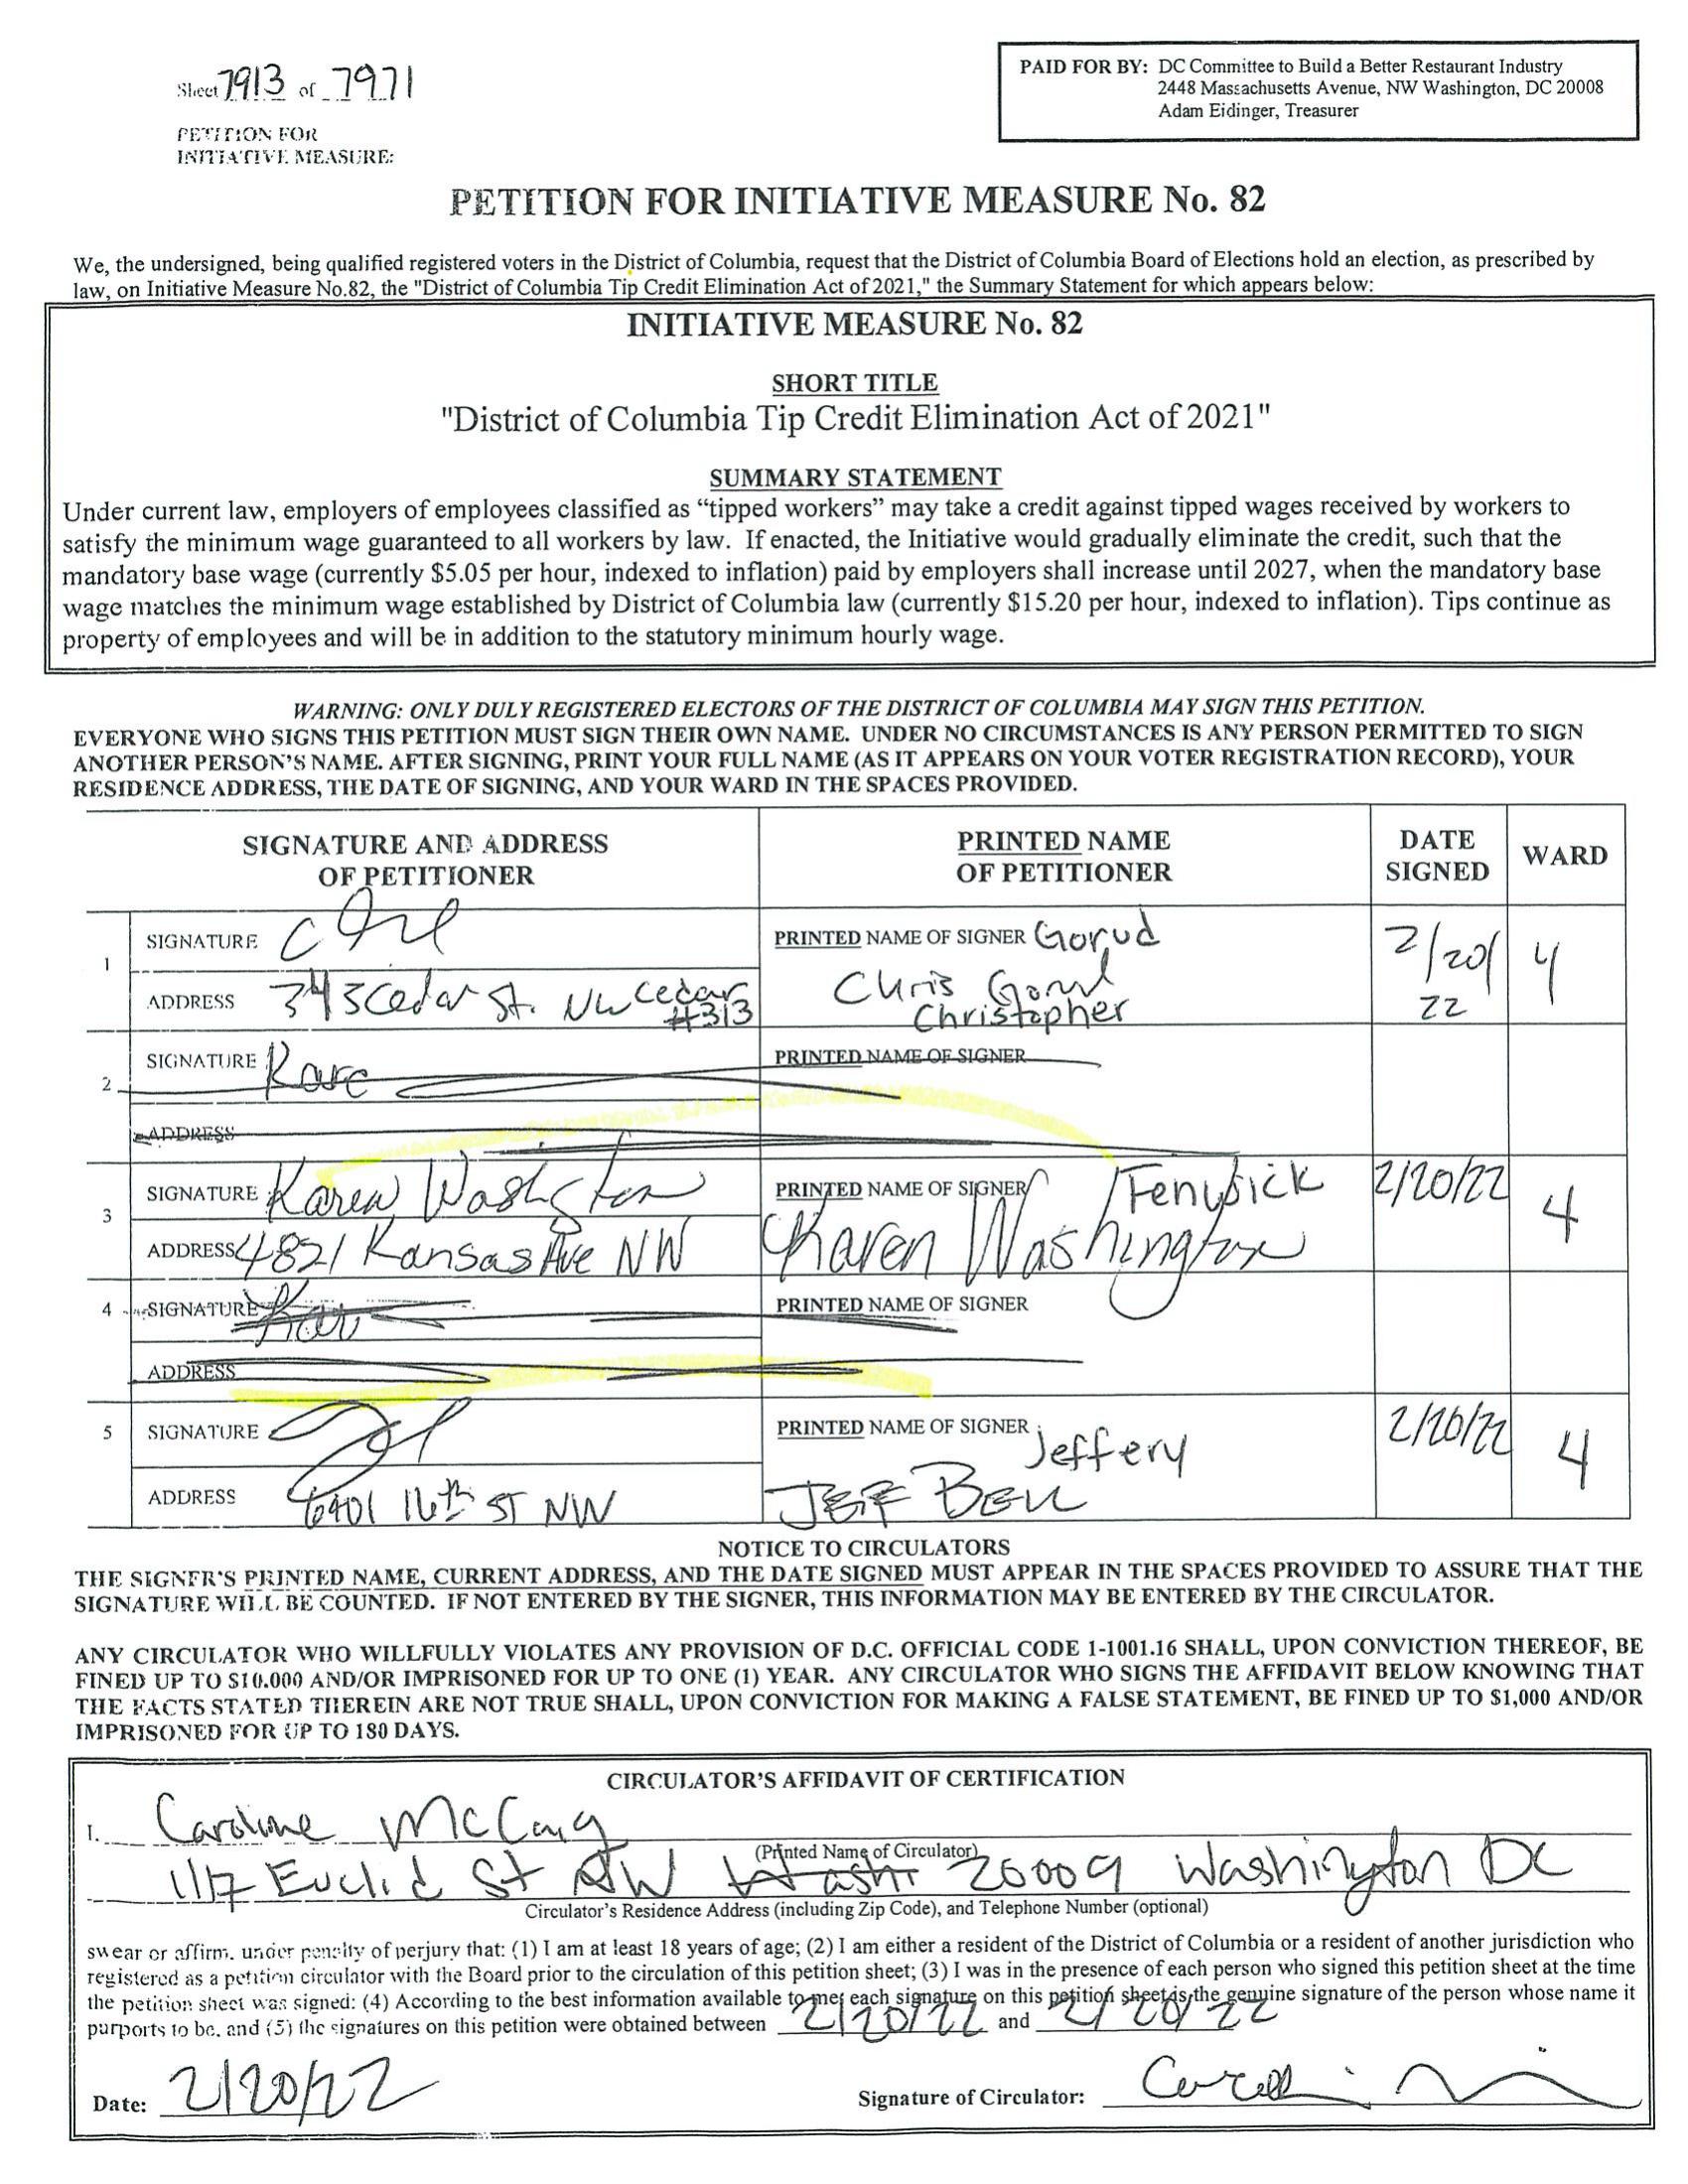 Sheet 7913 of 7971
PETITION FOR
INITIATIVE MEASURE:
PAID FOR BY: DC Committee to Build a Better Restaurant Industry
2448 Massachusetts Avenue, NW Washington, DC 20008
Adam Eidinger, Treasurer
PETITION FOR INITIATIVE MEASURE No. 82
We, the undersigned, being qualified registered voters in the District of Columbia, request that the District of Columbia Board of Elections hold an election, as prescribed by
law, on Initiative Measure No.82, the "District of Columbia Tip Credit Elimination Act of 2021," the Summary Statement for which appears below:
INITIATIVE MEASURE No. 82
SHORT TITLE
"District of Columbia Tip Credit Elimination Act of 2021"
SUMMARY STATEMENT
Under current law, employers of employees classified as “tipped workers” may take a credit against tipped wages received by workers to
satisfy the minimum wage guaranteed to all workers by law. If enacted, the Initiative would gradually eliminate the credit, such that the
mandatory base wage (currently $5.05 per hour, indexed to inflation) paid by employers shall increase until 2027, when the mandatory base
wage matches the minimum wage established by District of Columbia law (currently $15.20 per hour, indexed to inflation). Tips continue as
property of employees and will be in addition to the statutory minimum hourly wage.
WARNING: ONLY DULY REGISTERED ELECTORS OF THE DISTRICT OF COLUMBIA MAY SIGN THIS PETITION.
EVERYONE WHO SIGNS THIS PETITION MUST SIGN THEIR OWN NAME. UNDER NO CIRCUMSTANCES IS ANY PERSON PERMITTED TO SIGN
ANOTHER PERSON'S NAME. AFTER SIGNING, PRINT YOUR FULL NAME (AS IT APPEARS ON YOUR VOTER REGISTRATION RECORD), YOUR
RESIDENCE ADDRESS, THE DATE OF SIGNING, AND YOUR WARD IN THE SPACES PROVIDED.
SIGNATURE AND ADDRESS
OF PETITIONER
PRINTED NAME
OF PETITIONER
DATE
SIGNED
WARD
1
SIGNATURE
PRINTED NAME OF SIGNER Gorud
Chris Gorud
Christopher
2/20/
22
4
ADDRESS 343 Cedar St. NW Cedar
#313
2
SIGNATURE
PRINTED NAME OF SIGNER
ADDRESS
3
SIGNATURE Karen Washington
PRINTED NAME OF SIGNER Fenwick
Karen Washington
2/20/22
4
ADDRESS 4821 Kansas Ave NW
4
SIGNATURE
PRINTED NAME OF SIGNER
ADDRESS
5
SIGNATURE
PRINTED NAME OF SIGNER Jeffery
JEFF BELL
2/20/22
4
ADDRESS 6401 16th ST NW
NOTICE TO CIRCULATORS
THE SIGNER'S PRINTED NAME, CURRENT ADDRESS, AND THE DATE SIGNED MUST APPEAR IN THE SPACES PROVIDED TO ASSURE THAT THE
SIGNATURE WILL BE COUNTED. IF NOT ENTERED BY THE SIGNER, THIS INFORMATION MAY BE ENTERED BY THE CIRCULATOR.
ANY CIRCULATOR WHO WILLFULLY VIOLATES ANY PROVISION OF D.C. OFFICIAL CODE 1-1001.16 SHALL, UPON CONVICTION THEREOF, BE
FINED UP TO $10.000 AND/OR IMPRISONED FOR UP TO ONE (1) YEAR. ANY CIRCULATOR WHO SIGNS THE AFFIDAVIT BELOW KNOWING THAT
THE FACTS STATED THEREIN ARE NOT TRUE SHALL, UPON CONVICTION FOR MAKING A FALSE STATEMENT, BE FINED UP TO $1,000 AND/OR
IMPRISONED FOR UP TO 180 DAYS.
CIRCULATOR'S AFFIDAVIT OF CERTIFICATION
I. Caroline McCaig
(Printed Name of Circulator)
1117 Euclid St NW Wash 20009 Washington DC
Circulator's Residence Address (including Zip Code), and Telephone Number (optional)
swear or affirm, under penalty of perjury that: (1) I am at least 18 years of age; (2) I am either a resident of the District of Columbia or a resident of another jurisdiction who
registered as a petition circulator with the Board prior to the circulation of this petition sheet; (3) I was in the presence of each person who signed this petition sheet at the time
the petition sheet was signed: (4) According to the best information available to me, each signature on this petition sheet is the genuine signature of the person whose name it
purports to be, and (5) the signatures on this petition were obtained between 2/20/22 and 2/20/22
Date: 2/20/22
Signature of Circulator: